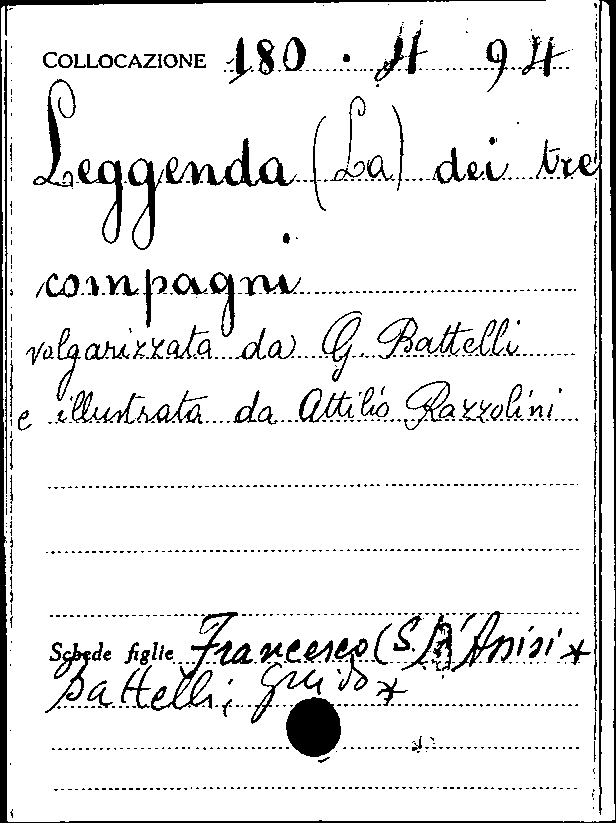 COLLOCAZIONE 180 . H 94
Leggenda (La) dei tre
compagni
volgarizzata da G. Battelli
e illustrata da Attilio Razzolini
Schede figlie Francesco (S.) d'Assisi *
Battelli, Guido *